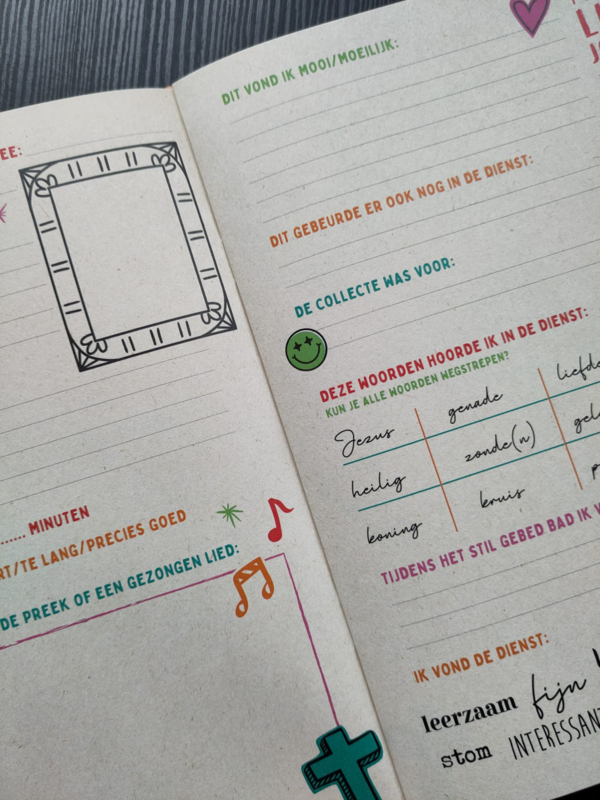 EE:
....... MINUTEN
RT/TE LANG/PRECIES GOED
DE PREEK OF EEN GEZONGEN LIED:
DIT VOND IK MOOI/MOEILIJK:
DIT GEBEURDE ER OOK NOG IN DE DIENST:
DE COLLECTE WAS VOOR:
DEZE WOORDEN HOORDE IK IN DE DIENST:
KUN JE ALLE WOORDEN WEGSTREPEN?
Jezus genade liefde
heilig zonde(n) gel
koning kruis
TIJDENS HET STIL GEBED BAD IK V
IK VOND DE DIENST:
leerzaam fijn
stom INTERESSANT